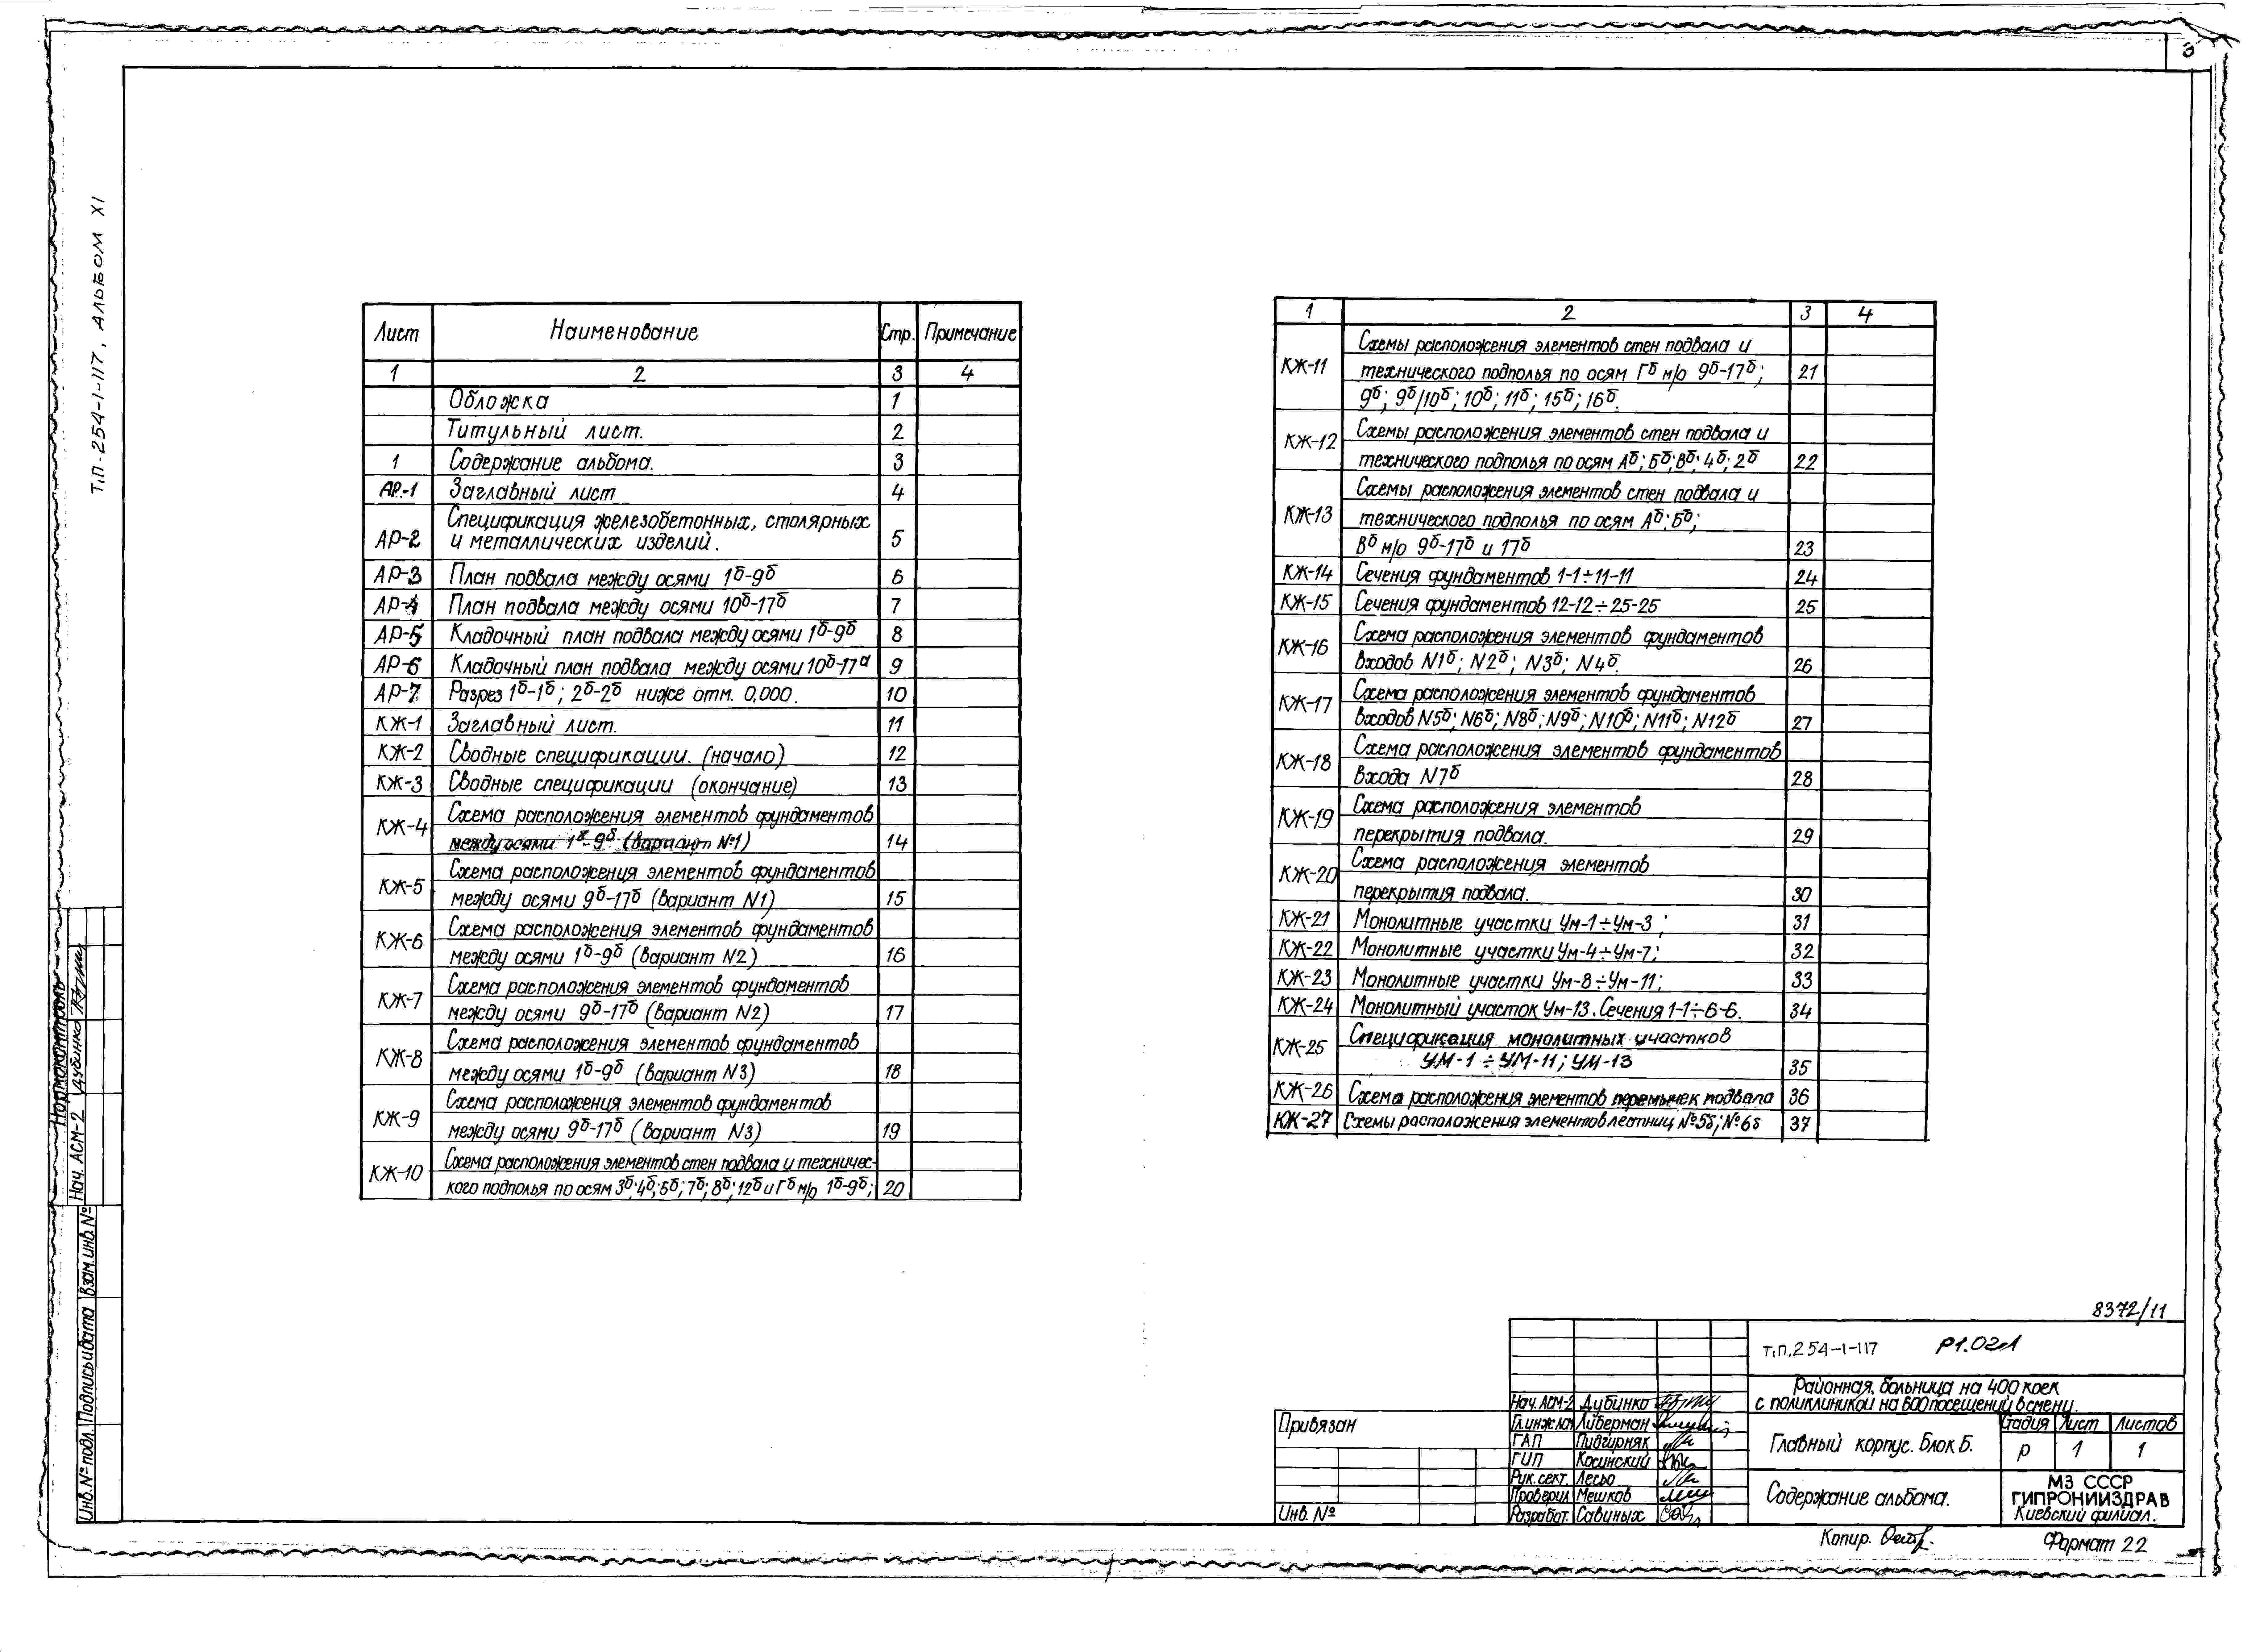 3
Т.П.-254-1-117, АЛЬБОМ XI
Лист Наименование Стр. Примечание
1 2 3 4
Обложка 1
Титульный лист. 2
1 Содержание альбома. 3
АР-1 Заглавный лист 4
Спецификация железобетонных, столярных
АР-2 и металлических изделий. 5
АР-3 План подвала между осями 1б-9б 6
АР-4 План подвала между осями 10б-17б 7
АР-5 Кладочный план подвала между осями 1б-9б 8
АР-6 Кладочный план подвала между осями 10б-17а 9
АР-7 Разрез 1б-1б; 2б-2б ниже отм. 0,000. 10
КЖ-1 Заглавный лист. 11
КЖ-2 Сводные спецификации. (начало) 12
КЖ-3 Сводные спецификации (окончание) 13
КЖ-4 Схема расположения элементов фундаментов
между осями 1б-9б (вариант №1) 14
КЖ-5 Схема расположения элементов фундаментов
между осями 9б-17б (вариант N1) 15
КЖ-6 Схема расположения элементов фундаментов
между осями 1б-9б (вариант N2) 16
КЖ-7 Схема расположения элементов фундаментов
между осями 9б-17б (вариант N2) 17
КЖ-8 Схема расположения элементов фундаментов
между осями 1б-9б (вариант N3) 18
КЖ-9 Схема расположения элементов фундаментов
между осями 9б-17б (вариант N3) 19
КЖ-10 Схема расположения элементов стен подвала и техничес-
кого подполья по осям 3б; 4б; 5б; 7б; 8б; 12б и Гб м/о 1б-9б; 20
1 2 3 4
Схемы расположения элементов стен подвала и
КЖ-11 технического подполья по осям Гб м/о 9б-17б; 21
9б; 9б/10б; 10б; 11б; 15б; 16б.
КЖ-12 Схемы расположения элементов стен подвала и
технического подполья по осям Аб; Бб; Вб; 4б; 2б 22
Схемы расположения элементов стен подвала и
КЖ-13 технического подполья по осям Аб; Бб;
Вб м/о 9б-17б и 17б 23
КЖ-14 Сечения фундаментов 1-1÷11-11 24
КЖ-15 Сечения фундаментов 12-12÷25-25 25
КЖ-16 Схема расположения элементов фундаментов
входов N1б; N2б; N3б; N4б. 26
КЖ-17 Схема расположения элементов фундаментов
входов N5б; N6б; N8б; N9б; N10б; N11б; N12б 27
КЖ-18 Схема расположения элементов фундаментов
входа N7б 28
КЖ-19 Схема расположения элементов
перекрытия подвала. 29
КЖ-20 Схема расположения элементов
перекрытия подвала. 30
КЖ-21 Монолитные участки Ум-1÷Ум-3; 31
КЖ-22 Монолитные участки Ум-4÷Ум-7; 32
КЖ-23 Монолитные участки Ум-8÷Ум-11; 33
КЖ-24 Монолитный участок Ум-13. Сечения 1-1÷6-6. 34
КЖ-25 Спецификация монолитных участков
УМ-1÷УМ-11; УМ-13 35
КЖ-26 Схема расположения элементов перемычек подвала 36
КЖ-27 Схемы расположения элементов лестниц №5б; №6б 37
Нормоконтроль
Нач. АСМ-2 Дубинко
Инв. № подл. Подпись и дата Взам. инв. №
8372/11
Т.П. 254-1-117
Районная больница на 400 коек
с поликлиникой на 600 посещений в смену.
Главный корпус. Блок Б.
Стадия Лист Листов
Р 1 1
Содержание альбома.
МЗ СССР
ГИПРОНИИЗДРАВ
Киевский филиал.
Нач. АСМ-2 Дубинко
Либерман
ГАП Пидгирняк
ГИП Косинский
Рук. сект. Лесьо
Проверил Мешков
Разработ. Савиных
Привязан
Инв. №
Копир.
Формат 22